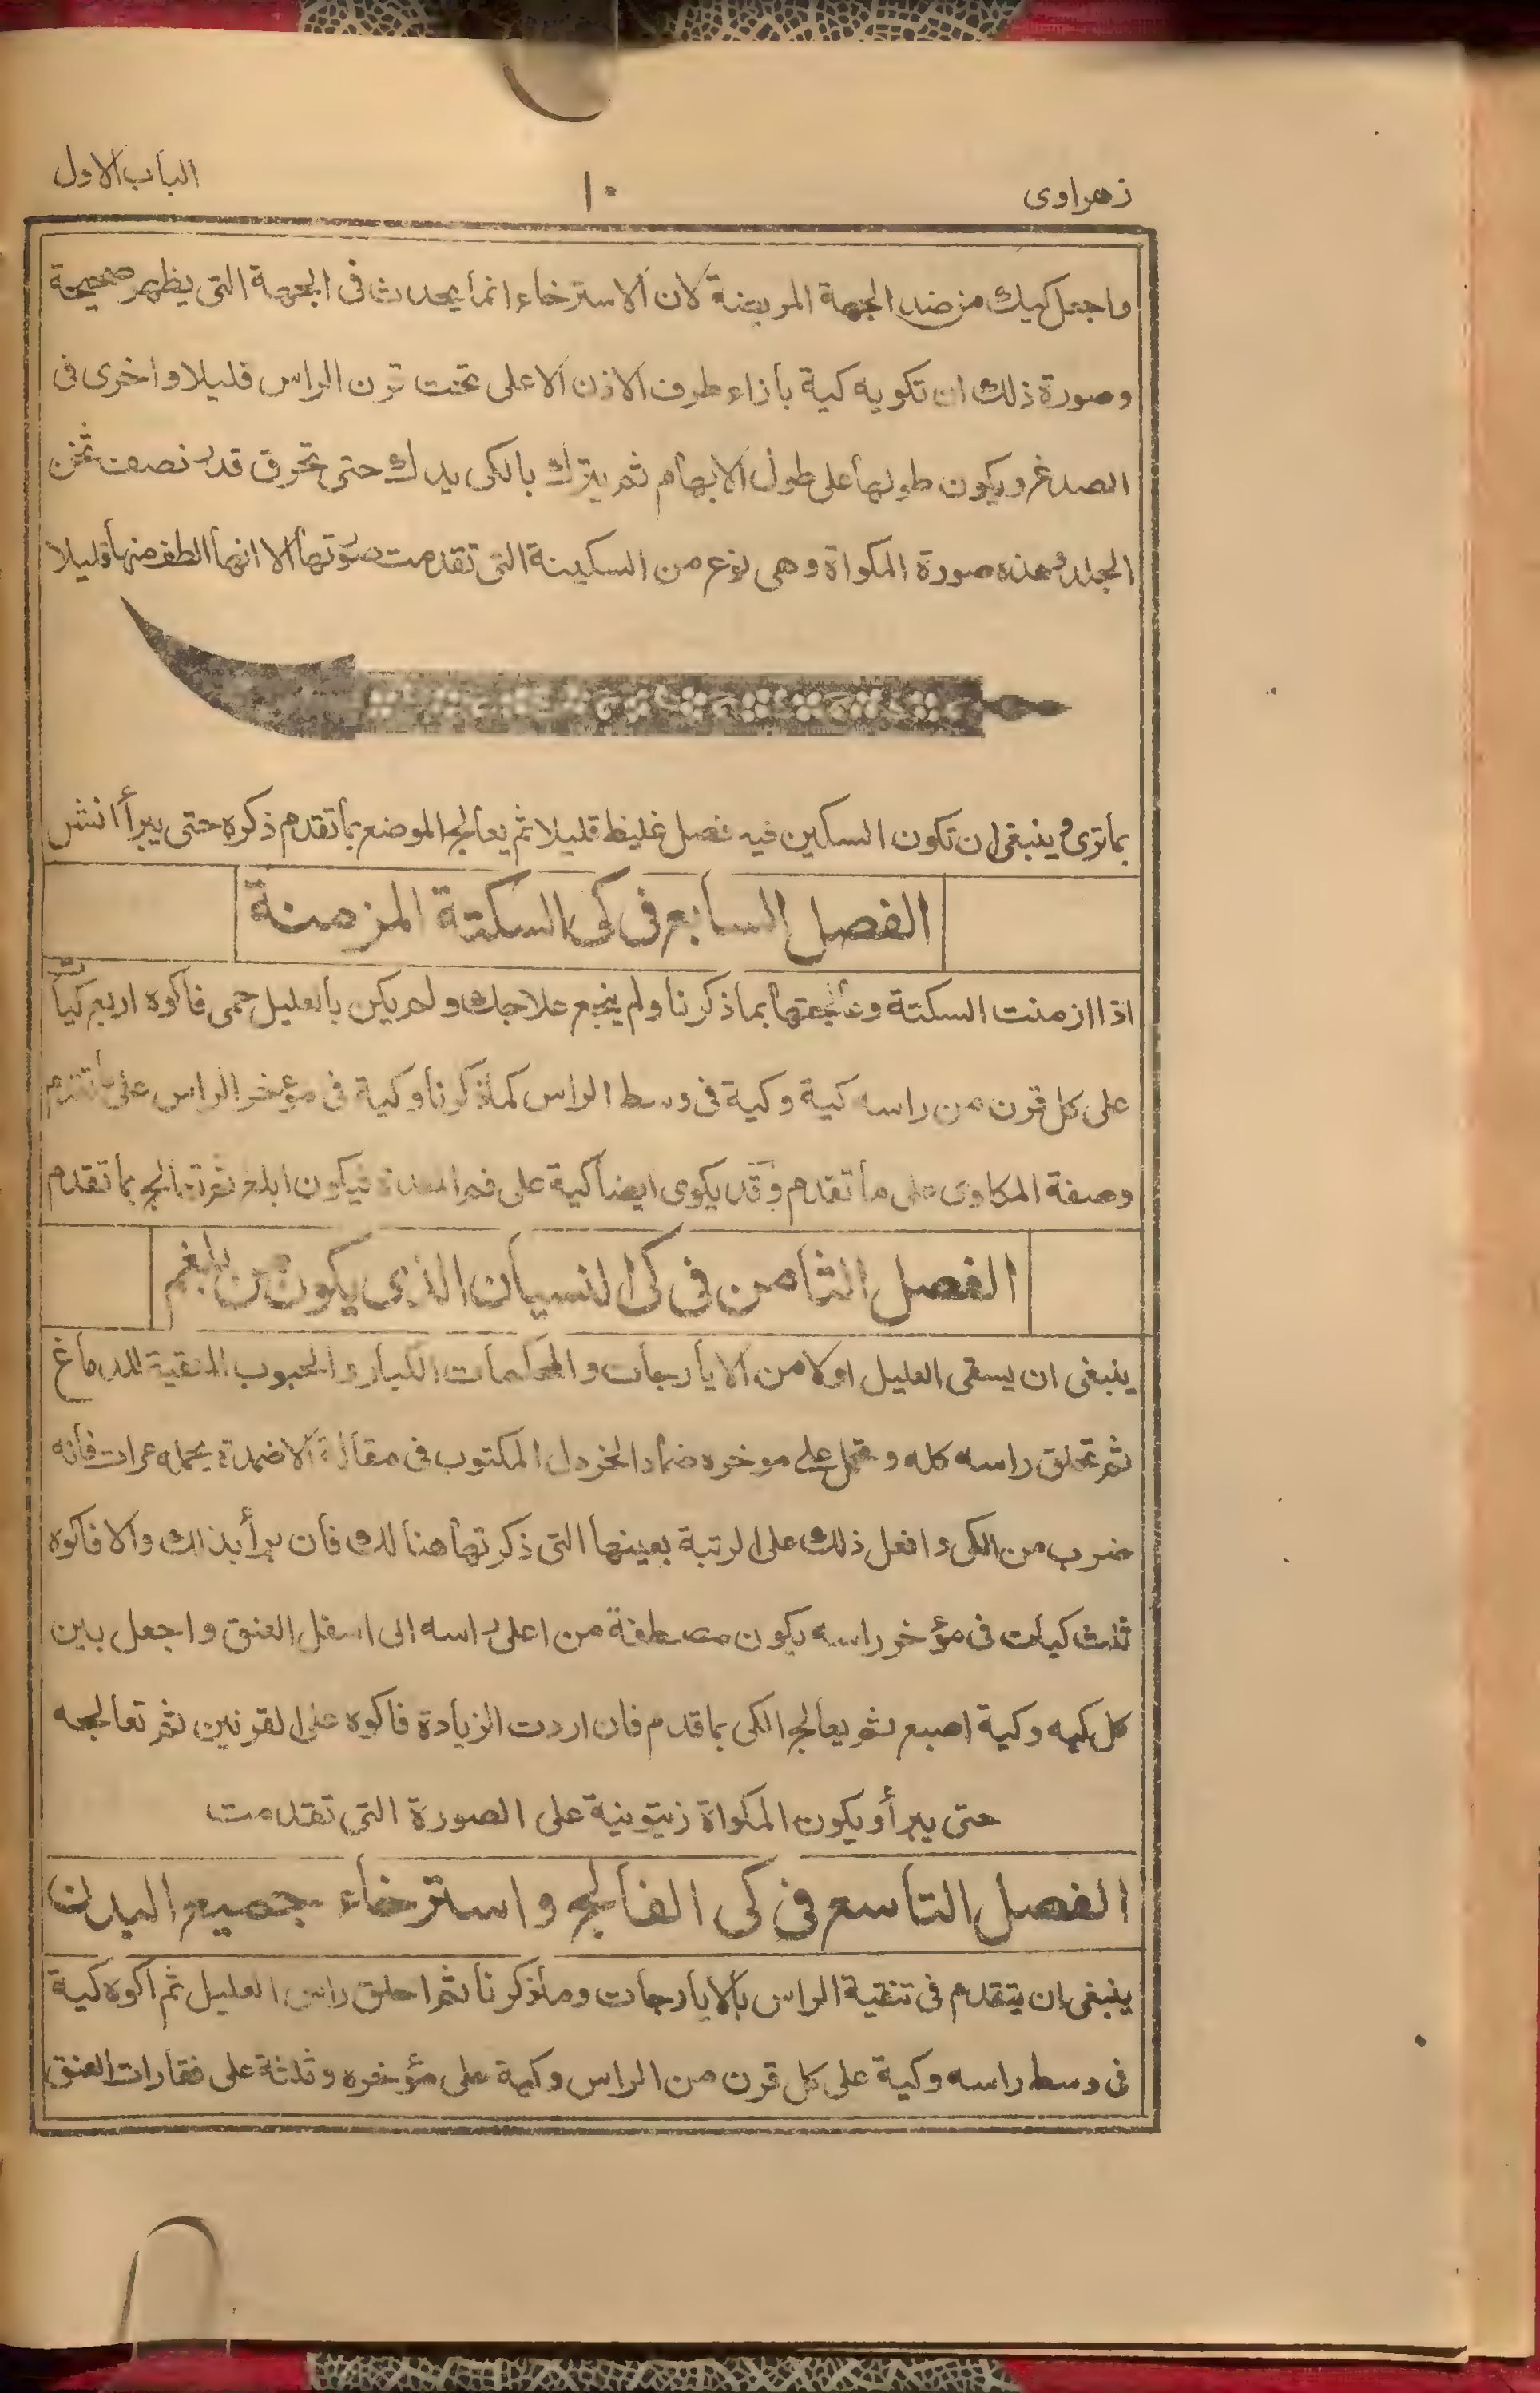 زهراوی
١٠
الباب الاول
واجعل كيك من ضد الجهة المريضة لان الاسترخاء انما يحدث فی الجهة التی يظهر صحيحة
وصورة ذلك ان تكويه كية بازاء طرف الاذن الاعلى تحت قرن الراس قليلا واخرى فی
الصدغ ويكون طولها على طول الابهام ثم يترك بالكی يدك حتى تحرق قدر نصف ثخن
الجلد وهذه صورة المكواة وهی نوع من السكينة التی تقدمت صورتها الا انها الطف منها قليلا
بما ترى وينبغی ان تكون السكين فيه فصل غليظ قليلا ثم يعالج الموضع بما تقدم ذكره حتى يبرأ انش
الفصل السابع فی كی السكتة المزمنة
اذا ازمنت السكتة وعالجتها بما ذكرنا ولم ينجع علاجك ولم يكن بالعليل حمى فاكوه اربع كيات
على كل قرن من راسه كية وكية فی وسط الراس كما ذكرنا وكية فی مؤخر الراس على ما تقدم
وصفة المكاوی على ما تقدم وقد يكوى ايضا كية على فم المعدة فيكون ابلغ ثم تعالج بما تقدم
الفصل الثامن فی كی النسيان الذی يكون من بلغم
ينبغی ان يسقى العليل اولا من الايارجات والمحكمات الكبار والحبوب المنقية للدماغ
ثم تحلق راسه كله وتحمل على موخره ضماد الخردل المكتوب فی مقالة الاضمدة يحمله مرات فانه
ضرب من الكی وافعل ذلك على الرتبة بعينها التی ذكرتها هنالك فان برأ بذلك والا فاكوه
ثلث كيات فی مؤخر راسه يكون مصطفة من اعلى راسه الى اسفل العنق واجعل بين
كل كيه وكية اصبع ثم يعالج الكی بما قدم فان اردت الزيادة فاكوه على القرنين ثم تعالجه
حتى يبرأ ويكون المكواة زيتونية على الصورة التی تقدمت
الفصل التاسع فی كی الفالج واسترخاء جميع البدن
ينبغی ان يتقدم فی تنقية الراس بالايارجات وما ذكرنا ثم احلق راس العليل ثم اكوه كية
فی وسط راسه وكية على كل قرن من الراس وكية على مؤخره وثلثة على فقارات العنق